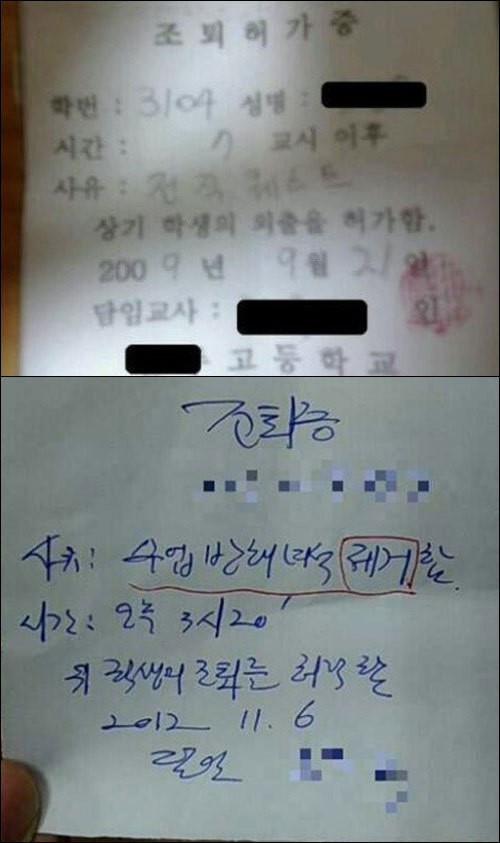 조퇴허가증
학번 : 3104 성명 :
시간 : 7 교시 이후
사유 : 전직 퀘스트
상기 학생의 외출을 허가함.
2009년 9월 21일
담임교사 : 인
고등학교
조퇴증
사유: 수업 방해 녀석 제거함.
시간: 오후 3시20'
위 학생의 조퇴를 허락함
2012 11. 6
담임